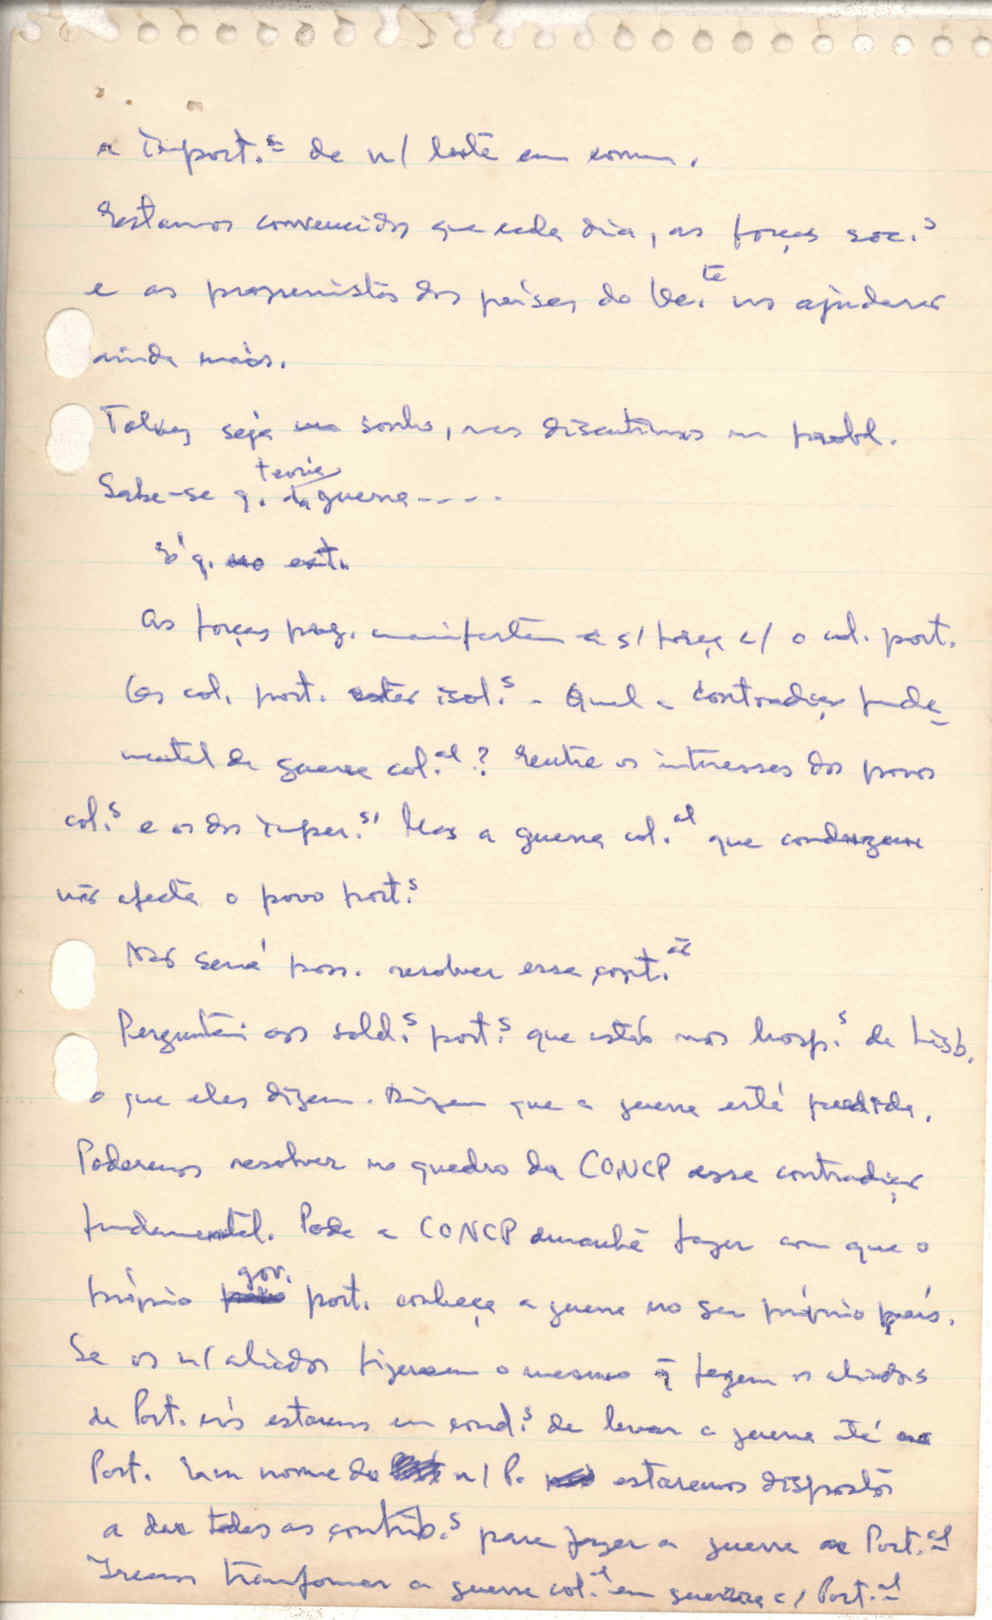 a import.ª de n/ luta em comum.
Estamos convencidos que cada dia, as forças soc.s
e as progressistas dos países do Oc.te nos ajudarão
ainda mais.
Talvez seja um sonho, mas discutimos um probl.
Sabe-se q. teoria da guerra ----
É q. no ext.
As forças prog. manifestem a s/ força c/ o col. port.
Os col. port. estão isol.s - Qual a contradição funda-
mental da guerra col.al? Entre os interesses dos povos
col.s e os dos imper.s, Mas a guerra col.al que conduzem
não afecta o povo port.s
Não será poss. resolver essa cont.ão
Perguntei aos sold.s port.s que estão nos hosp.s de Lisb.
o que eles dizem. Dizem que a guerra está perdida.
Poderemos resolver no quadro da CONCP essa contradição
fundamental. Pode a CONCP amanhã fazer com que o
próprio gov. port. conheça a guerra no seu próprio país.
Se os n/ aliados fizerem o mesmo q̄ fazem os aliados
de Port. nós estaremos em cond.s de levar a guerra até ao
Port. Em nome do n/ P. estaremos dispostos
a dar todas as contrib.s para fazer a guerra a Port.al
Iremos transformar a guerra col.al em guerra c/ Port.al